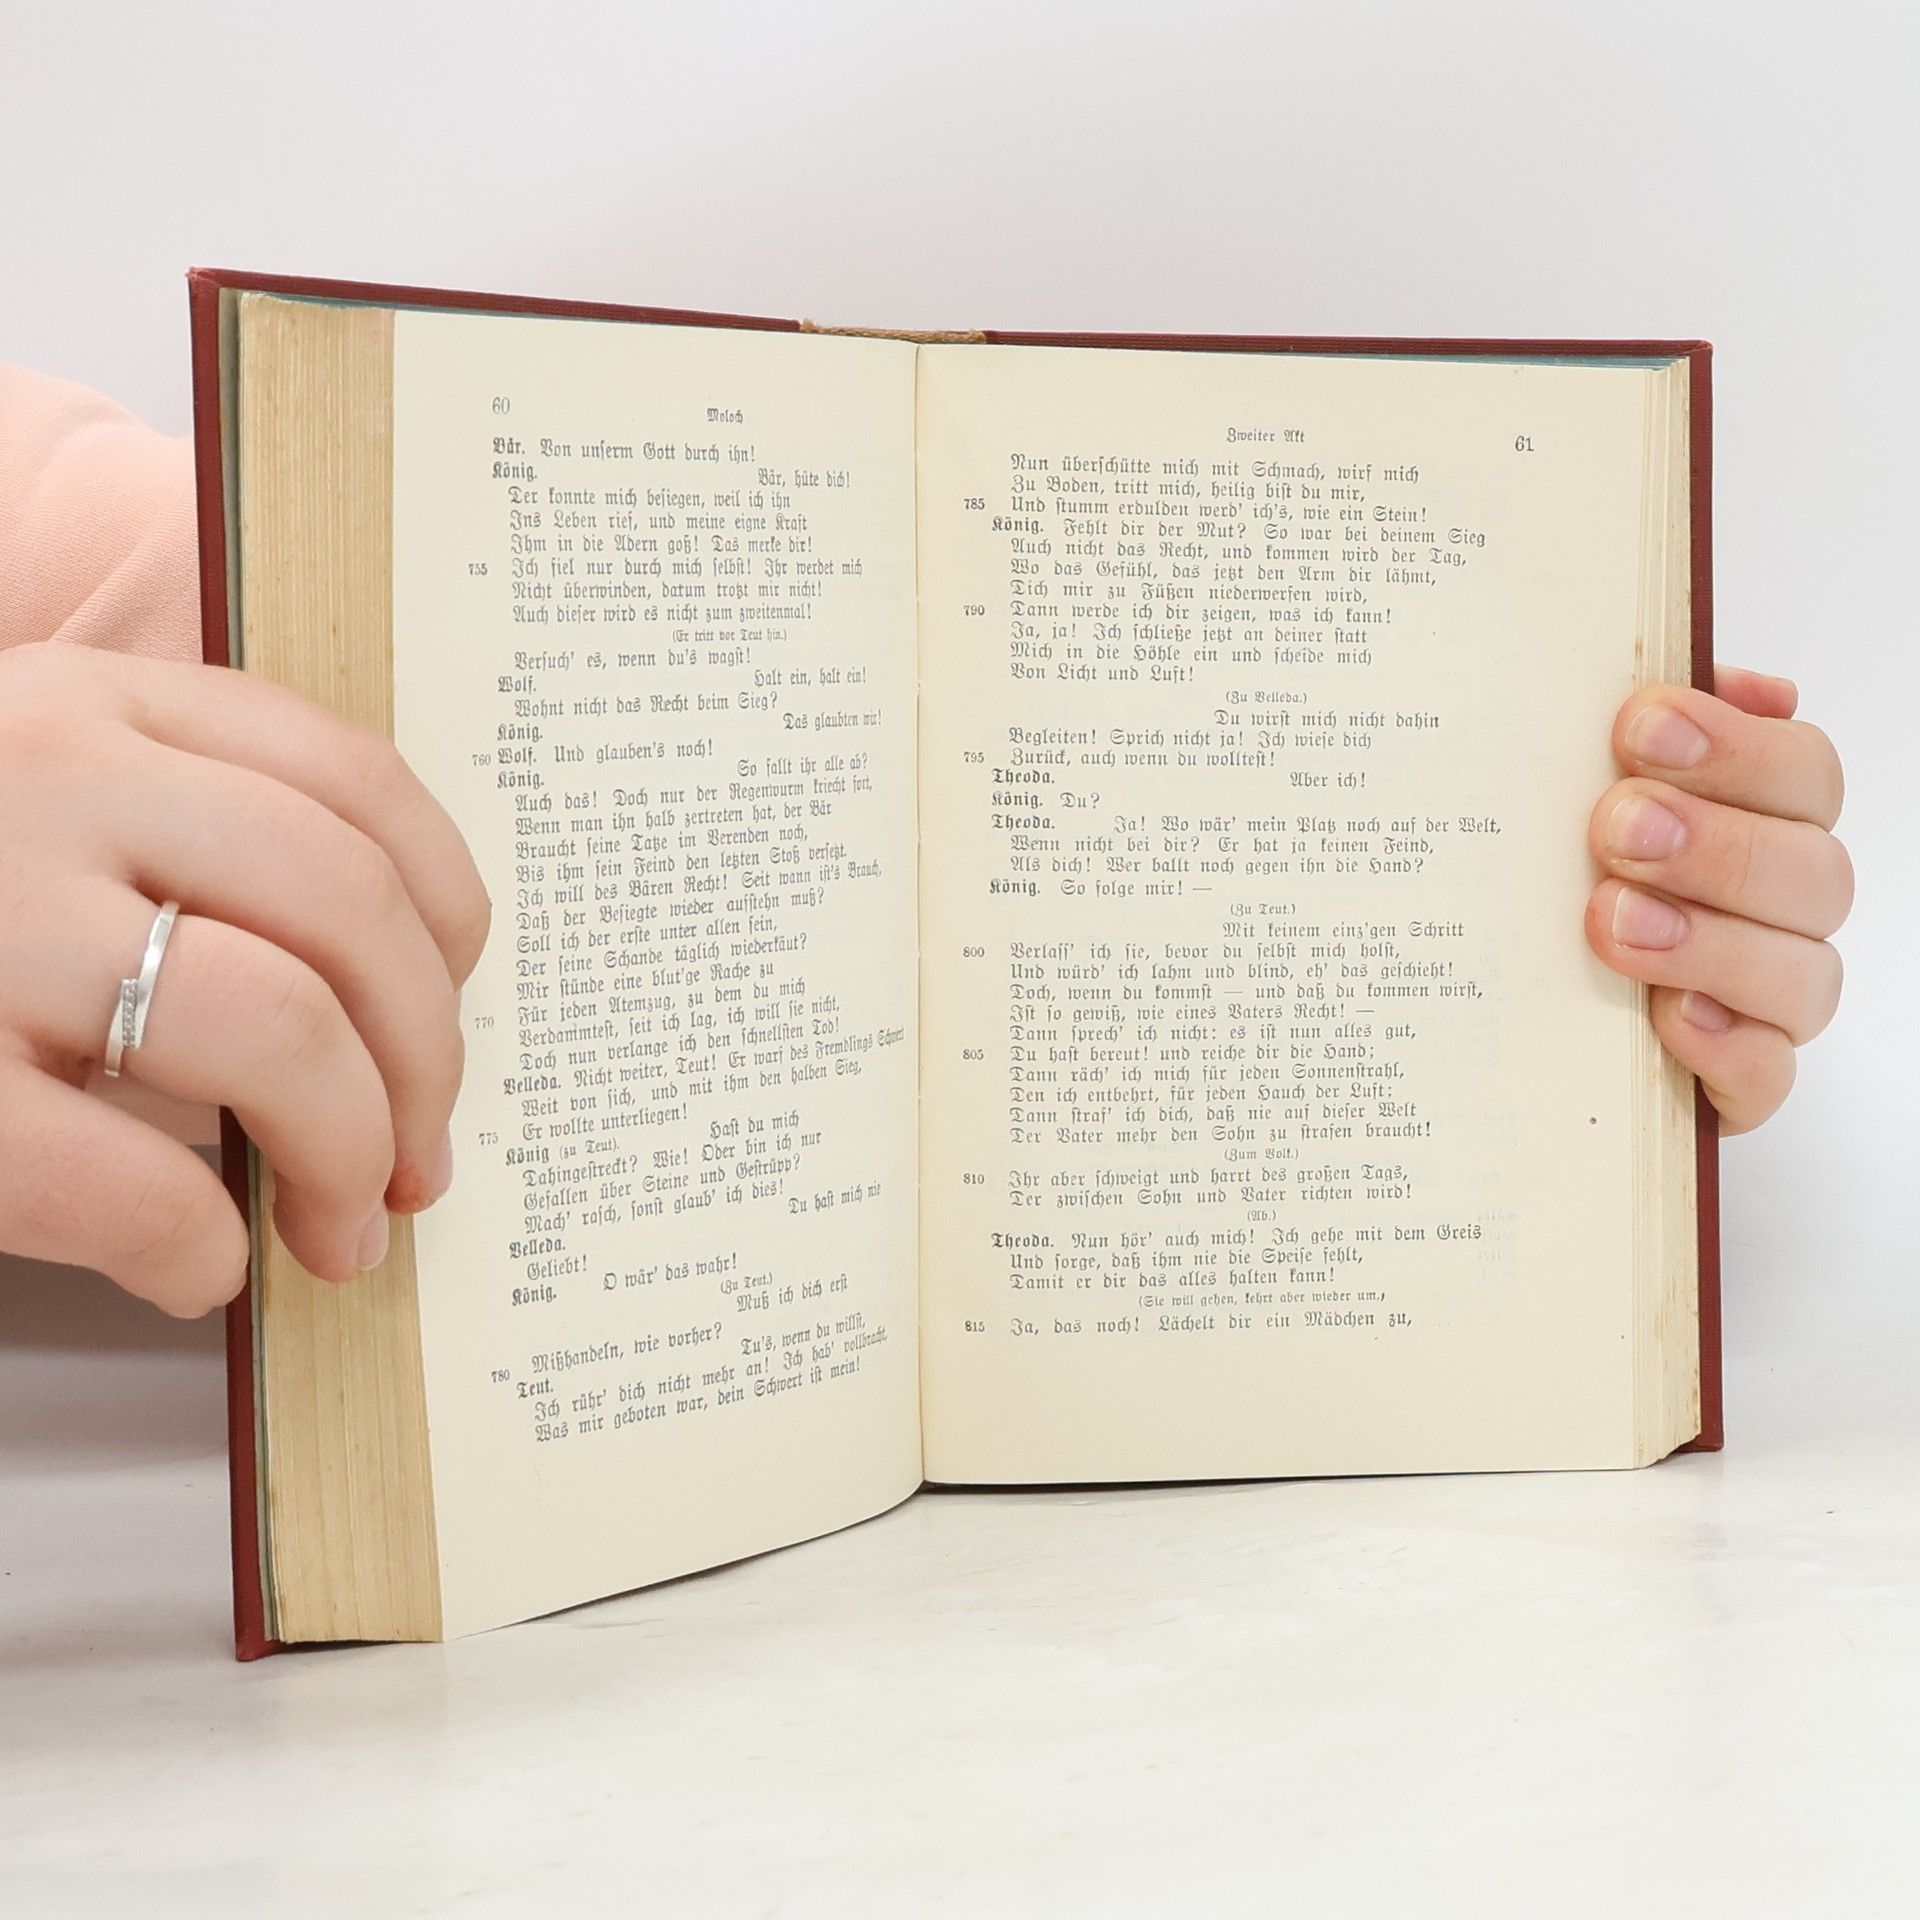 60
Moloch
Bär. Von unserm Gott durch ihn!
König. Bär, hüte dich!
Der konnte mich besiegen, weil ich ihn
Ins Leben rief, und meine eigne Kraft
Ihm in die Adern goß! Das merke dir!
755 Ich fiel nur durch mich selbst! Ihr werdet mich
Nicht überwinden, datum trotzt mir nicht!
Auch dieser wird es nicht zum zweitenmal!
(Er tritt vor Teut hin.)
Versuch' es, wenn du's wagst!
Wolf. Halt ein, halt ein!
Wohnt nicht das Recht beim Sieg?
König. Das glaubten wir!
760 Wolf. Und glauben's noch!
König. So fallt ihr alle ab?
Auch das! Doch nur der Regenwurm kriecht fort,
Wenn man ihn halb zertreten hat, der Bär
Braucht seine Tatze im Verenden noch,
Bis ihm sein Feind den letzten Stoß versetzt.
Ich will des Bären Recht! Seit wann ist's Brauch,
Daß der Besiegte wieder aufstehn muß?
Soll ich der erste unter allen sein,
Der seine Schande täglich wiederkäut?
Mir stünde eine blut'ge Rache zu
770 Für jeden Atemzug, zu dem du mich
Verdammtest, seit ich lag, ich will sie nicht,
Doch nun verlange ich den schnellsten Tod!
Velleda. Nicht weiter, Teut! Er warf des Fremdlings Schwert
Weit von sich, und mit ihm den halben Sieg,
775 Er wollte unterliegen!
König (zu Teut). Hast du mich
Dahingestreckt? Wie! Oder bin ich nur
Gefallen über Steine und Gestrüpp?
Mach' rasch, sonst glaub' ich dies!
Velleda. Du hast mich nie
Geliebt!
König. O wär' das wahr!
(Zu Teut.)
Muß ich dich erst
780 Mißhandeln, wie vorher?
Teut. Tu's, wenn du willst,
Ich rühr' dich nicht mehr an! Ich hab' vollbracht,
Was mir geboten war, dein Schwert ist mein!
Zweiter Akt
61
Nun überschütte mich mit Schmach, wirf mich
Zu Boden, tritt mich, heilig bist du mir,
785 Und stumm erdulden werd' ich's, wie ein Stein!
König. Fehlt dir der Mut? So war bei deinem Sieg
Auch nicht das Recht, und kommen wird der Tag,
Wo das Gefühl, das jetzt den Arm dir lähmt,
Dich mir zu Füßen niederwerfen wird,
790 Dann werde ich dir zeigen, was ich kann!
Ja, ja! Ich schließe jetzt an deiner statt
Mich in die Höhle ein und scheide mich
Von Licht und Luft!
(Zu Velleda.)
Du wirst mich nicht dahin
Begleiten! Sprich nicht ja! Ich wiese dich
795 Zurück, auch wenn du wolltest!
Theoda. Aber ich!
König. Du?
Theoda. Ja! Wo wär' mein Platz noch auf der Welt,
Wenn nicht bei dir? Er hat ja keinen Feind,
Als dich! Wer ballt noch gegen ihn die Hand?
König. So folge mir! —
(Zu Teut.)
Mit keinem einz'gen Schritt
800 Verlass' ich sie, bevor du selbst mich holst,
Und würd' ich lahm und blind, eh' das geschieht!
Doch, wenn du kommst — und daß du kommen wirst,
Ist so gewiß, wie eines Vaters Recht! —
Dann sprech' ich nicht: es ist nun alles gut,
805 Du hast bereut! und reiche dir die Hand;
Dann räch' ich mich für jeden Sonnenstrahl,
Den ich entbehrt, für jeden Hauch der Luft;
Dann straf' ich dich, daß nie auf dieser Welt
Der Vater mehr den Sohn zu strafen braucht!
(Zum Volk.)
810 Ihr aber schweigt und harrt des großen Tags,
Der zwischen Sohn und Vater richten wird!
(Ab.)
Theoda. Nun hör' auch mich! Ich gehe mit dem Greis
Und sorge, daß ihm nie die Speise fehlt,
Damit er dir das alles halten kann!
(Sie will gehen, kehrt aber wieder um.)
815 Ja, das noch! Lächelt dir ein Mädchen zu,